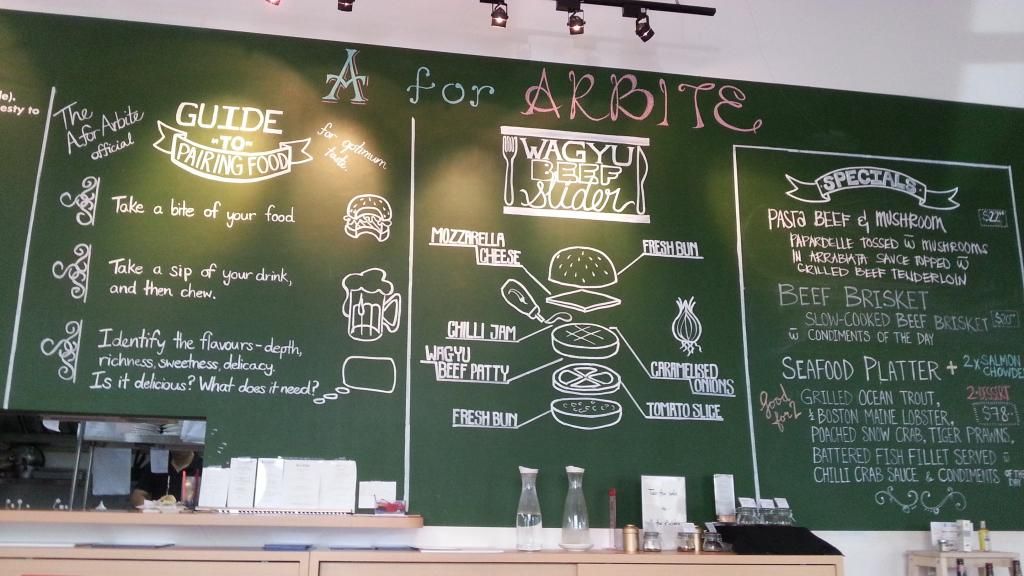 A for ARBITE
le).
esty to
The
A for Arbite
official
GUIDE
-TO-
PAIRING FOOD
for optimum
taste.
Take a bite of your food
Take a sip of your drink,
and then chew.
Identify the flavours-depth,
richness, sweetness, delicacy.
Is it delicious? What does it need?
WAGYU
BEEF
slider
MOZZARELLA
CHEESE
FRESH BUN
CHILLI JAM
WAGYU
BEEF PATTY
CARAMELISED
ONIONS
FRESH BUN
TOMATO SLICE
SPECIALS
PASTA BEEF & MUSHROOM
PAPARDELLE TOSSED W MUSHROOMS
IN ARRABIATA SAUCE TOPPED W
GRILLED BEEF TENDERLOIN
BEEF BRISKET
SLOW-COOKED BEEF BRISKET
W CONDIMENTS OF THE DAY
SEAFOOD PLATTER + 2x SALMON
CHOWDE
$78-
good
for 2
GRILLED OCEAN TROUT,
& BOSTON MAINE LOBSTER,
POACHED SNOW CRAB, TIGER PRAWNS,
BATTERED FISH FILLET SERVED W
CHILLI CRAB SAUCE & CONDIMENTS OF THE DAY